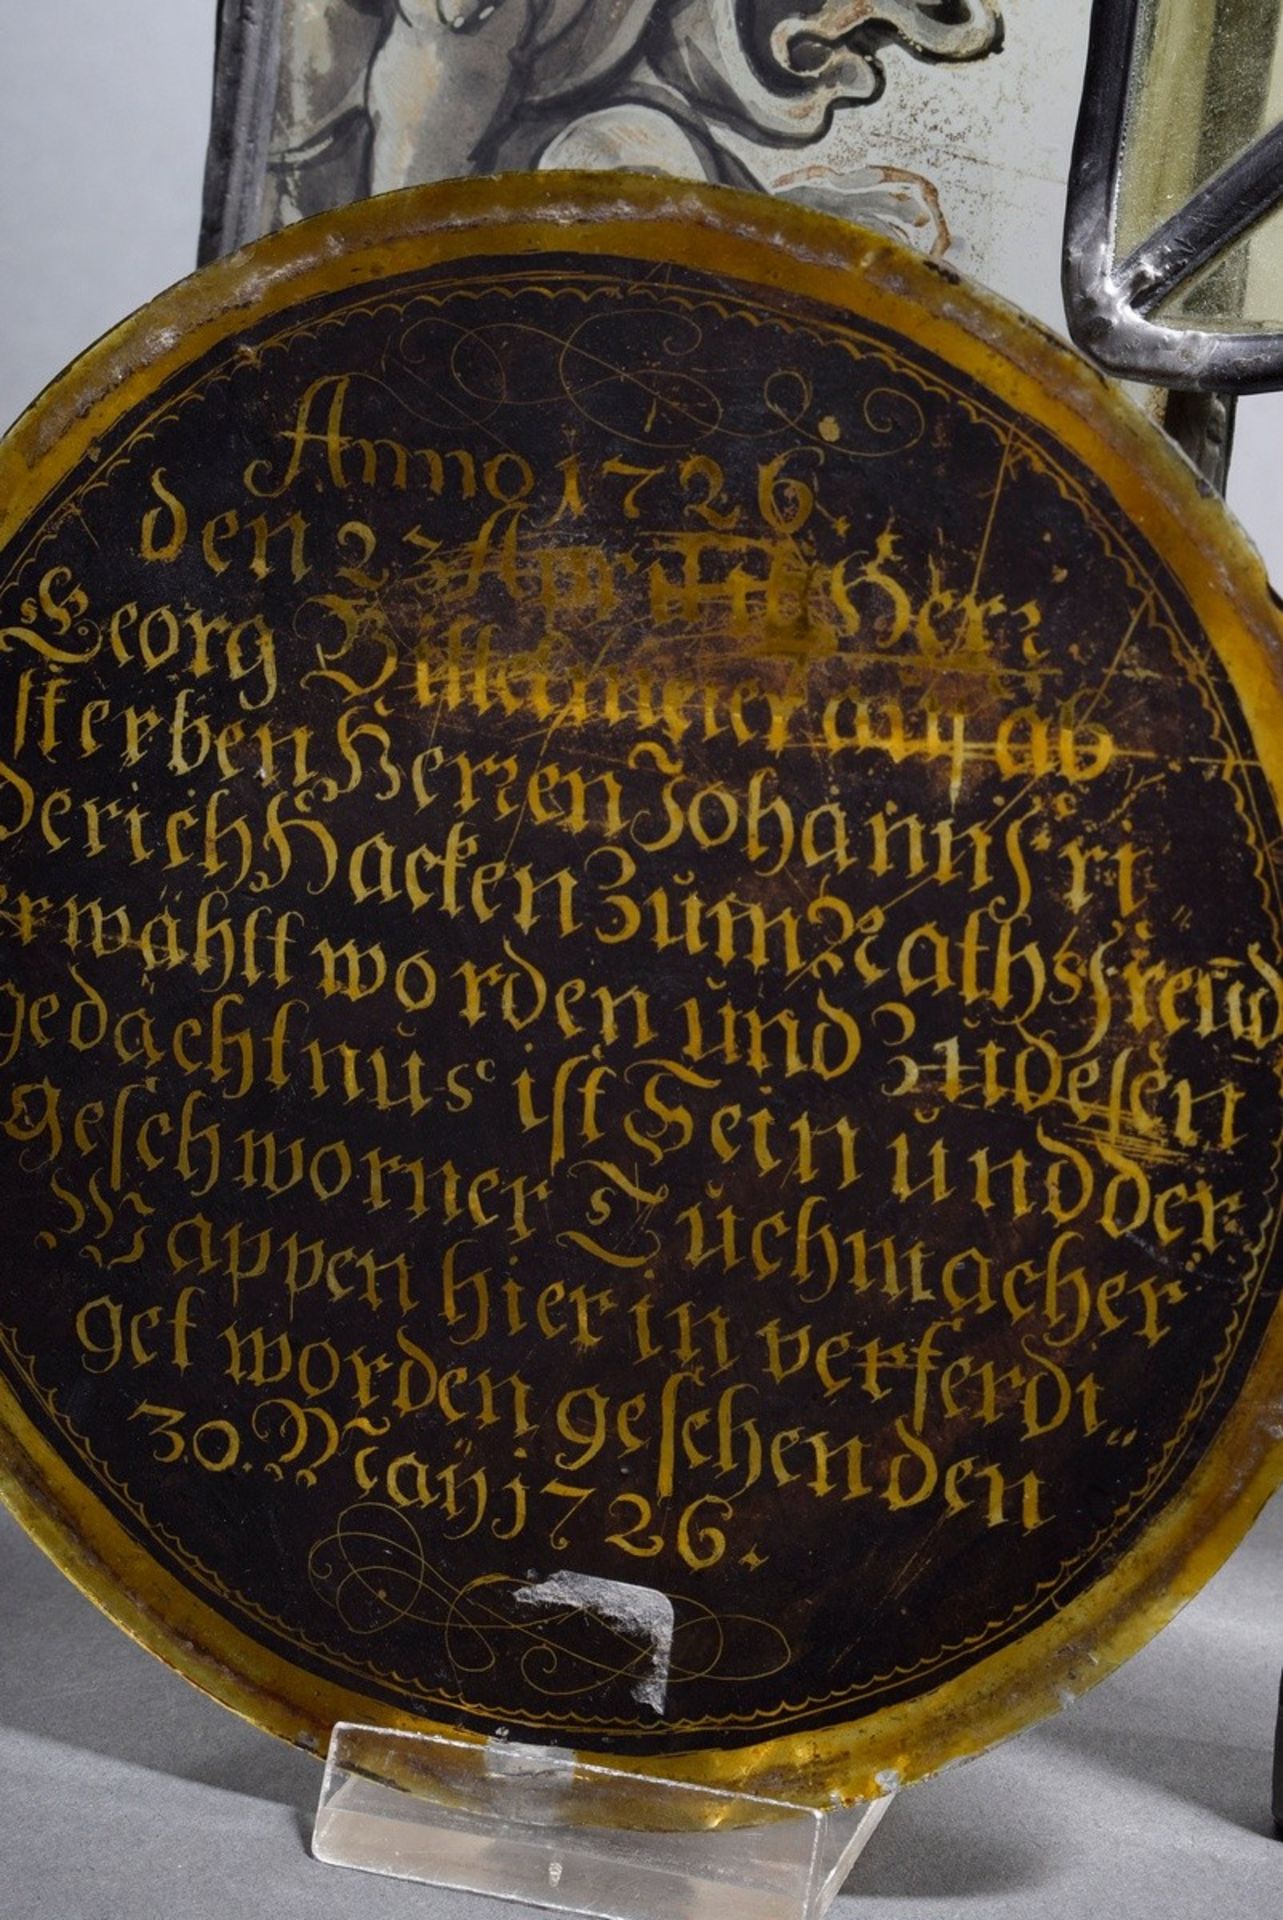 Anno 1726.
den 2 April ist Herr
Georg auf ab
sterben Herren Johann Fri
derich Hacken Zŭm Rathsfreŭd
erwählt worden ŭnd Zŭ desen
gedachtnŭs ist Sein ŭnd der
geschworner Tŭchmacher
Wappen hierin verferdi„
get worden geschen den
30. Maÿ 1726.